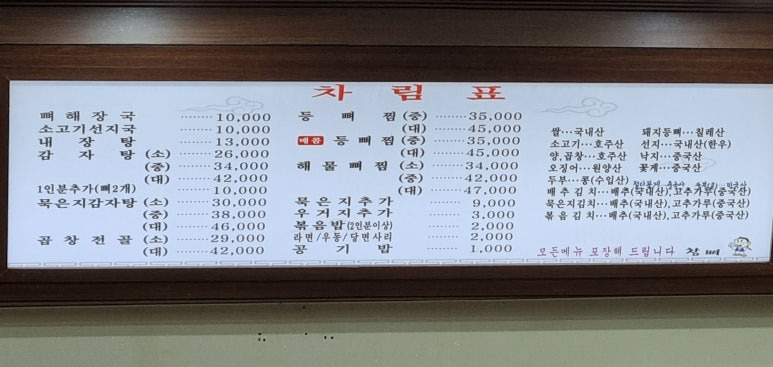 차림표
뼈해장국 ········ 10,000
소고기선지국 ········ 10,000
내장탕 ········ 13,000
감자탕 (소) ········ 26,000
(중) ········ 34,000
(대) ········ 42,000
1인분추가(뼈2개) ········ 10,000
묵은지감자탕 (소) ········ 30,000
(중) ········ 38,000
(대) ········ 46,000
곱창전골 (소) ········ 29,000
(대) ········ 42,000
등뼈찜 (중) ········ 35,000
(대) ········ 45,000
매콤 등뼈찜 (중) ········ 35,000
(대) ········ 45,000
해물뼈찜 (소) ········ 34,000
(중) ········ 42,000
(대) ········ 47,000
묵은지추가 ········ 9,000
우거지추가 ········ 3,000
볶음밥(2인분이상) ········ 2,000
라면/우동/당면사리 ········ 2,000
공기밥 ········ 1,000
쌀···국내산 돼지등뼈···칠레산
소고기···호주산 선지···국내산(한우)
양,곱창···호주산 낙지···중국산
오징어···원양산 꽃게···중국산
두부···콩(수입산)
배추김치···배추(국내산),고추가루(중국산)
묵은지김치···배추(국내산),고추가루(중국산)
볶음김치···배추(국내산),고추가루(중국산)
모든메뉴 포장해 드립니다 참뼈